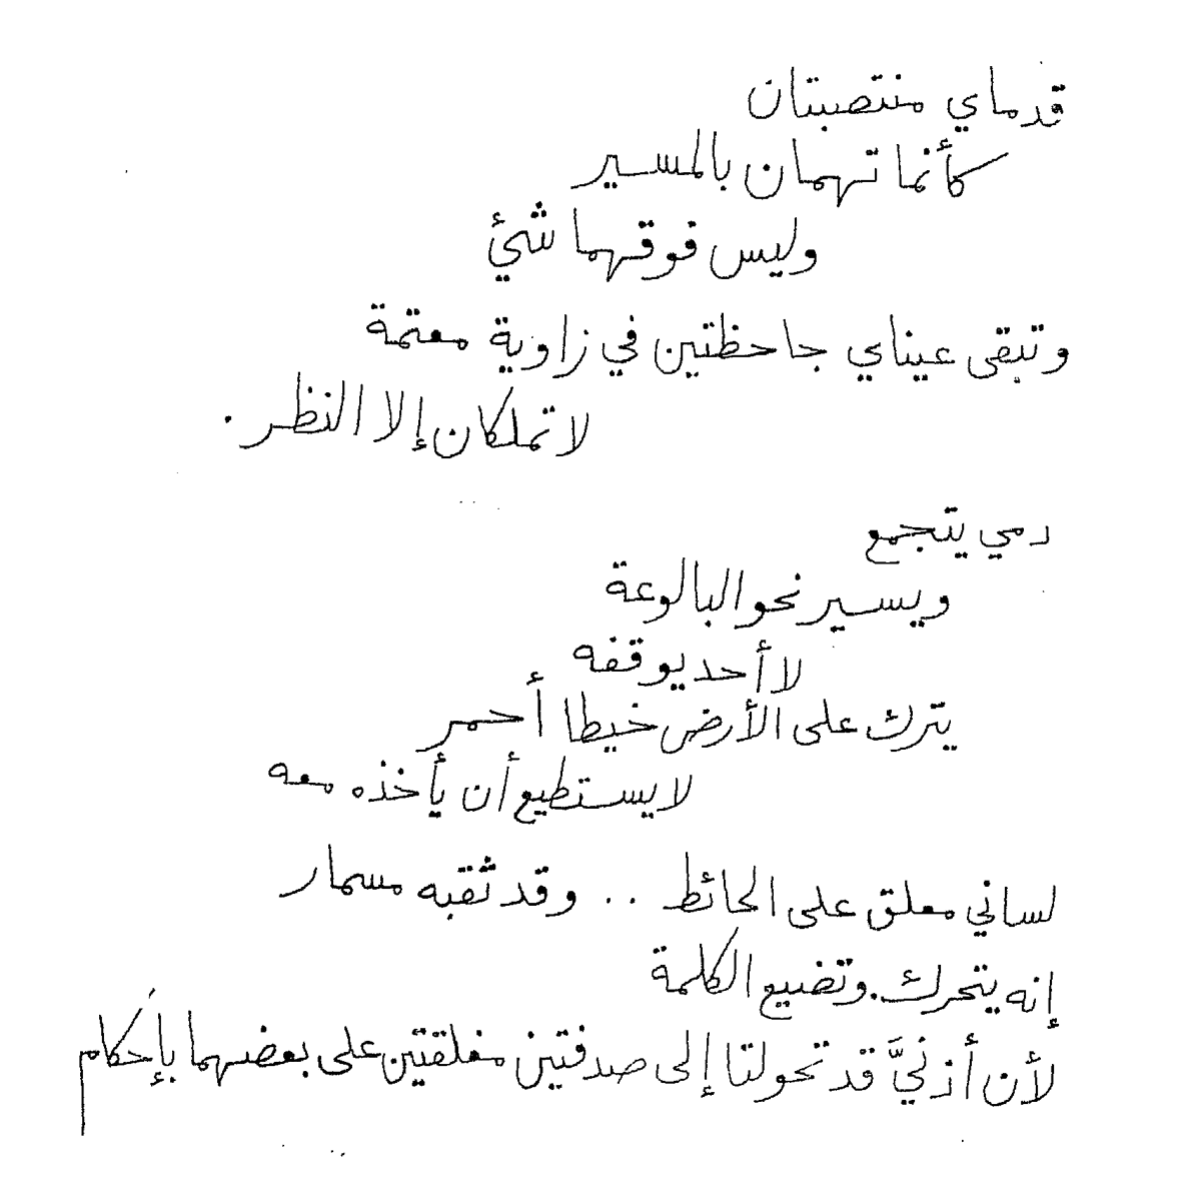 قدماي منتصبتان
كأنما تهمان بالمسير
وليس فوقهما شئ
وتبقى عيناي جاحظتين في زاوية معتمة
لا تملكان إلا النظر .
دمي يتجمع
ويسير نحو البالوعة
لا أحد يوقفه
يترك على الأرض خيطا أحمر
لا يستطيع أن يأخذه معه
لساني معلق على الحائط . . وقد ثقبه مسمار
إنه يتحرك . وتضيع الكلمة
لأن أذنيَّ قد تحولتا إلى صدفتين مغلقتين على بعضهما بإحكام